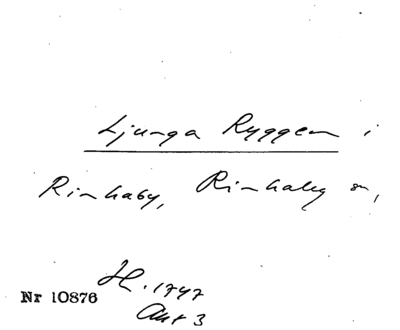 Ljunga Ryggen i
Rinkaby, Rinkaby sn,
H. 1747
Akt 3
Nr 10876